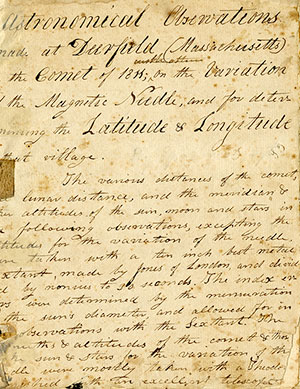 Astronomical Observations
made at Durfield (Massachusetts)
the Comet of 1811; on the Variation
the Magnetic Needle; and for deter-
mining the Latitude & Longitude
that village.
The various distances of the comet,
lunar distances, and the meridian &
altitudes of the sun, moon and stars in
following observations, excepting the
altitudes for the variation of the needle,
taken with a ten inch best metal
sextant, made by Jones of London, and divid
by nonius to seconds. The index
was determined by the mensuration
the sun's diameter, and allowed for in
observations with the Sextant. The
& altitudes of the comet & those
the sun & stars for the variation of the
were mostly taken with a Theodo
with an excellent telescope